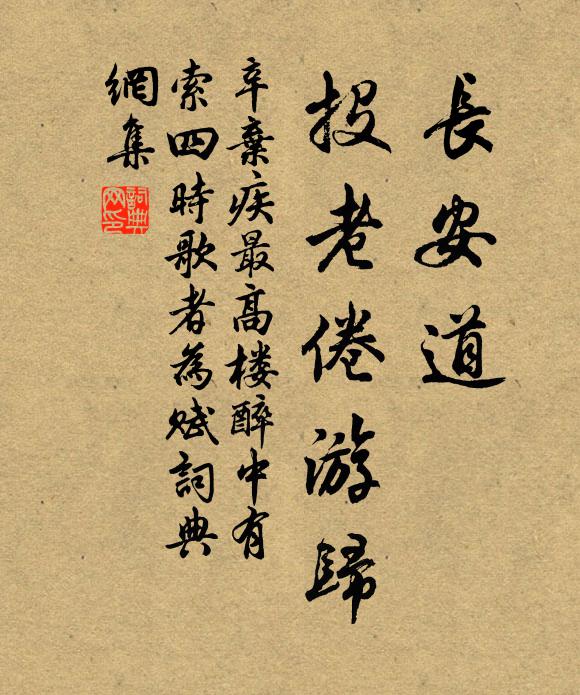 長安道
投老倦游歸
辛棄疾最高楼醉中有
索四時歌者為赋詞典
網集
詞典網印